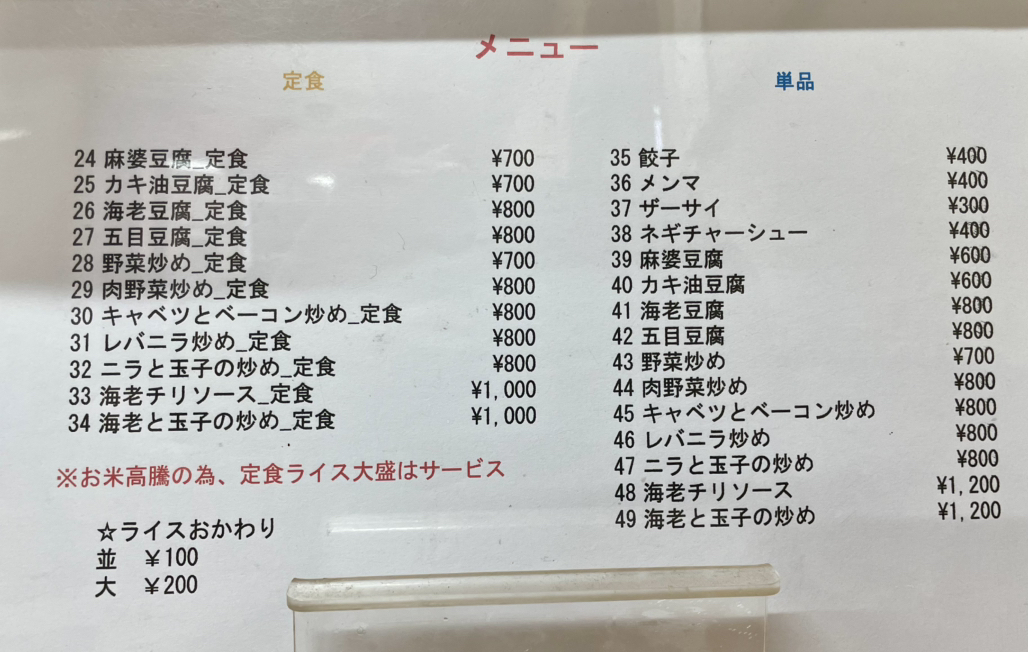 メニュー
定食
24 麻婆豆腐_定食 ¥700
25 カキ油豆腐_定食 ¥700
26 海老豆腐_定食 ¥800
27 五目豆腐_定食 ¥800
28 野菜炒め_定食 ¥700
29 肉野菜炒め_定食 ¥800
30 キャベツとベーコン炒め_定食 ¥800
31 レバニラ炒め_定食 ¥800
32 ニラと玉子の炒め_定食 ¥800
33 海老チリソース_定食 ¥1,000
34 海老と玉子の炒め_定食 ¥1,000
※お米高騰の為、定食ライス大盛はサービス
☆ライスおかわり
並 ¥100
大 ¥200
単品
35 餃子 ¥400
36 メンマ ¥400
37 ザーサイ ¥300
38 ネギチャーシュー ¥400
39 麻婆豆腐 ¥600
40 カキ油豆腐 ¥600
41 海老豆腐 ¥800
42 五目豆腐 ¥800
43 野菜炒め ¥700
44 肉野菜炒め ¥800
45 キャベツとベーコン炒め ¥800
46 レバニラ炒め ¥800
47 ニラと玉子の炒め ¥800
48 海老チリソース ¥1,200
49 海老と玉子の炒め ¥1,200